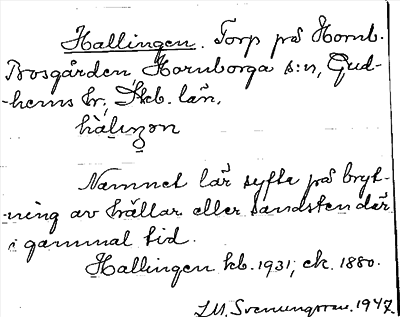 Hallingen. Torp på Hornb.
Bosgården Hornborga s:n, Gud-
-hems hr, Skb. län.
hàlıŋən
Namnet lär syfta på bryt-
-ning av hällar eller sandsten där
i gammal tid.
Hallingen kb. 1931, ek. 1880.
Svenungsson. 1947.